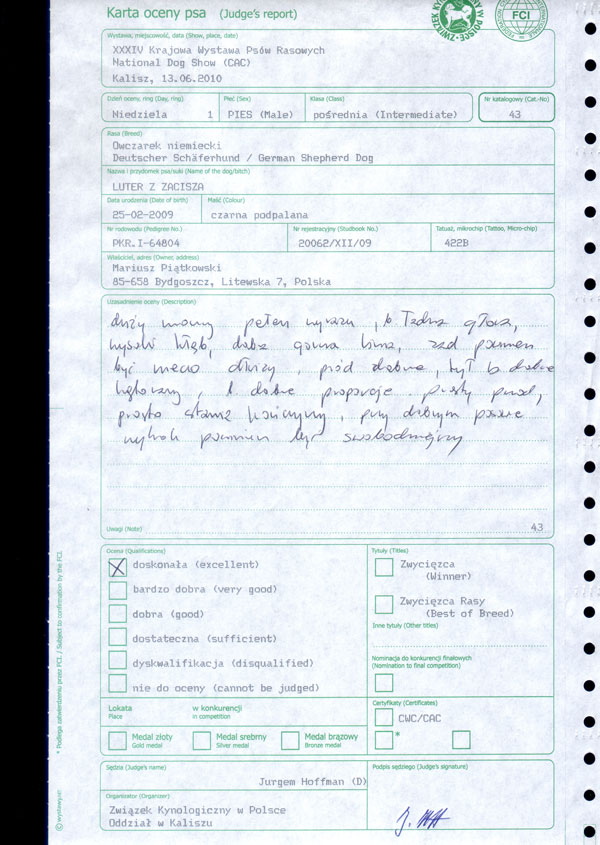 Karta oceny psa (Judge's report)
ZWIĄZEK KYN W POLSCE
FCI
Wystawa, miejscowość, data (Show, place, date)
XXXIV Krajowa Wystawa Psów Rasowych
National Dog Show (CAC)
Kalisz, 13.06.2010
Dzień oceny, ring (Day, ring) Płeć (Sex) Klasa (Class) Nr katalogowy (Cat.-No)
Niedziela 1 PIES (Male) pośrednia (Intermediate) 43
Rasa (Breed)
Owczarek niemiecki
Deutscher Schäferhund / German Shepherd Dog
Nazwa i przydomek psa/suki (Name of the dog/bitch)
LUTER Z ZACISZA
Data urodzenia (Date of birth) Maść (Colour)
25-02-2009 czarna podpalana
Nr rodowodu (Pedigree No.) Nr rejestracyjny (Studbook No.) Tatuaż, mikrochip (Tattoo, Micro-chip)
PKR.I-64804 20062/XII/09 422B
Właściciel, adres (Owner, address)
Mariusz Piątkowski
85-658 Bydgoszcz, Litewska 7, Polska
Uzasadnienie oceny (Description)
duży mocny pełen wyrazu, b. ładna głowa,
wysoki kłąb, dobra górna linia, zad powinien
być nieco dłuższy, przód dobry, tył b. dobrze
kątowany, b. dobre proporcje, prosty przód,
prosto stawia kończyny, przy dobrym
wykrok powinien być swobodniejszy
Uwagi (Note) 43
Ocena (Qualifications) Tytuły (Titles)
doskonała (excellent) Zwycięzca
(Winner)
bardzo dobra (very good)
dobra (good) Zwycięzca Rasy
(Best of Breed)
dostateczna (sufficient) Inne tytuły (Other titles)
dyskwalifikacja (disqualified) Nominacja do konkurencji finałowych
(Nomination to final competition)
nie do oceny (cannot be judged)
Lokata w konkurencji Certyfikaty (Certificates)
Place in competition CWC/CAC
Medal złoty Medal srebrny Medal brązowy *
Gold medal Silver medal Bronze medal
Sędzia (Judge's name) Podpis sędziego (Judge's signature)
Jurgem Hoffman (D)
Organizator (Organizer)
Związek Kynologiczny w Polsce
Oddział w Kaliszu
* Podlega zatwierdzeniu przez FCI. / Subject to confirmation by the FCI.